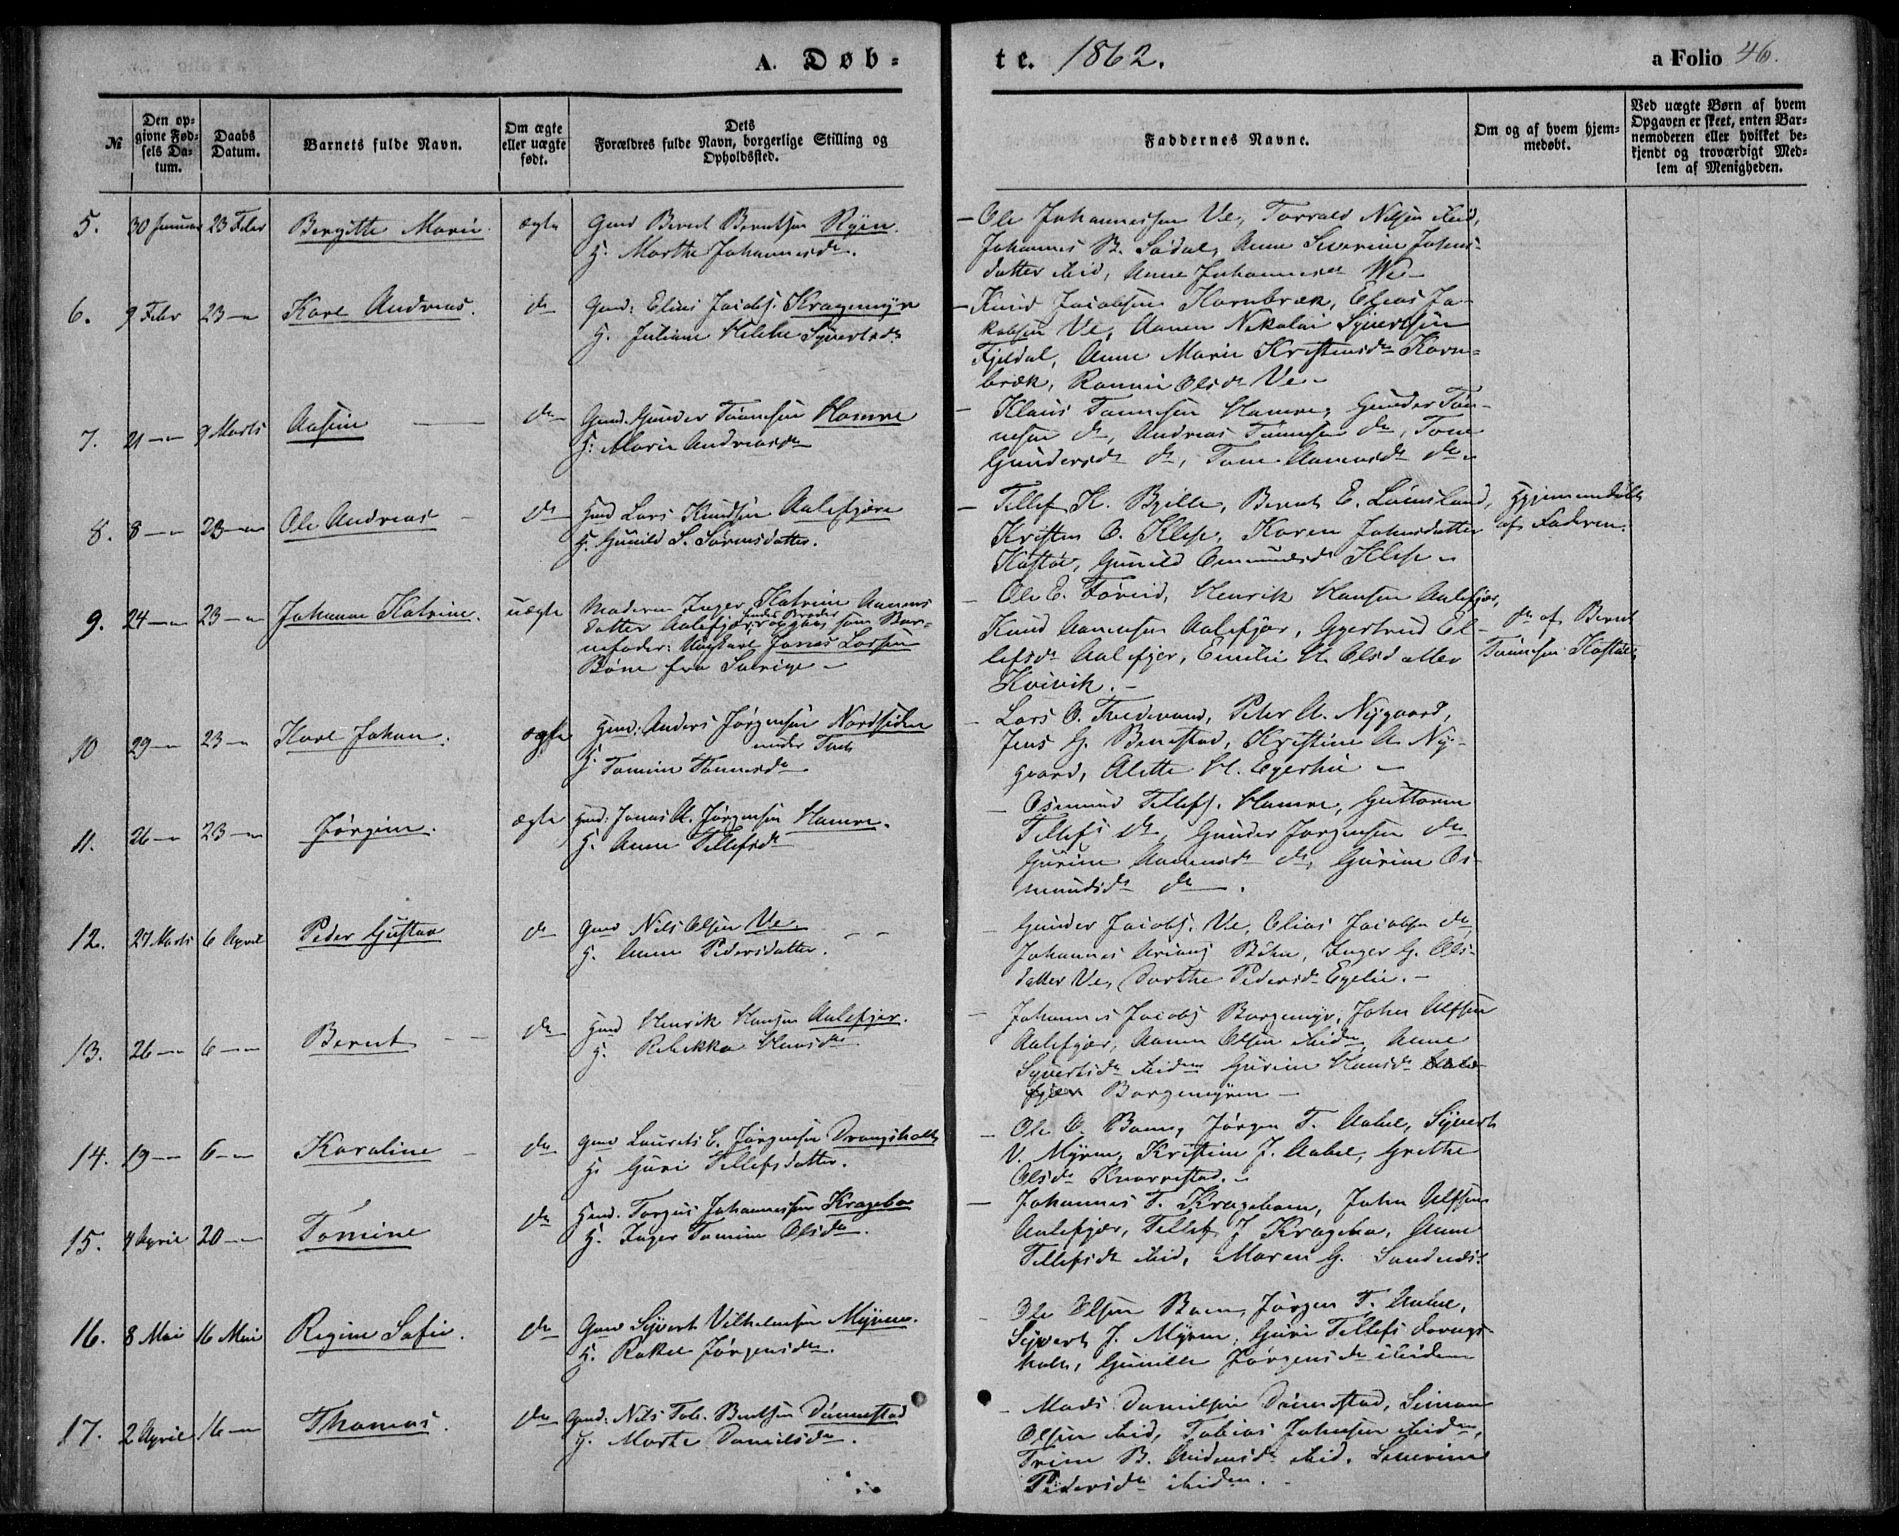 A. Døb-
te. 1862.
a Folio 46.
№
Den op-
givne Fød-
sels Da-
tum.
Daabs
Datum.
Barnets fulde Navn.
Om ægte
eller uægte
født.
Dets
Forældres fulde Navn, borgerlige Stilling og
Opholdssted.
Faddernes Navne.
Om og af hvem hjem-
medøbt.
Ved uægte Børn af hvem
Opgaven er skeet, enten Bar-
nemoderen eller hvilket be-
kjendt og troværdigt Med-
lem af Menigheden.
5. 30 Januar 23 Febr Bergitte Marie. ægte
Gmd Bernt Berntsen Ryen.
H. Marthe Johannesdr.
– Ole Johannessen Ve, Torvald Nilsen ibid,
Johannes B. Sødal, Anne Severine Johns-
datter ibid, Anne Johannesdr Ve –
6. 9 Febr 23 – Karl Andreas. do
Gmd: Elias Jacobs. Kragemyr
H. Juliane Syvertsdr
– Knud Jacobsen Kornbræk, Elias Ja-
kobsen Ve, Aanen Nikolai Syvertsen
Fjeldal, Anne Marie Kristensdr Korn-
bræk, Olsdr Ve –
7. 21 – 9 Marts Aasine do
Gmd. Gunder Tønnesen Hamre
H: Marie Andreasdr
– Klaus Tønnesen Hamre, Gunder Tøn-
nesen do, Andreas Tønnesen do, Tone
Gundersdr do, Tone Aanensdr do –
8. 8 – 23 – Ole Andreas – do
Hmd Lars Knudsen Aalefjære
H. Gunild S. Sørensdatter.
– Tellef K. Bjelle, Bernt E. Lauvsland,
Kristen O. Klep, Karen Johnsdatter
Kostøl, Gunild Klep –
Hjemmedøbt
af Faderen.
9. 24 – 23 – Johanne Katrine. uægte
Moderen Inger Katrine Aanens
datter Aalefjær, opgav som Bar-
nefader: Ungkarl Jonas Larsen
fra Sverige –
– Ole E. Føreid, Henrik Hansen Aalefjær,
Knud Aanensen Aalefjær, Gjertrud El-
lefsdr Aalefjer, Emilie H. Olsdatter
Kvivik. –
do af Bernt
Tønnesen Kostøl
10 29 – 23 – Karl Johan. ægte
Hmd: Anders Jørgensen Nordsiden
under Tveit
H. Tomine Tønnesdr
– Lars O. Tvedsand, Peter A. Nygaard,
Jens G. Benestad, Kristine A. Ny-
gaard, Alette H. –
11. 26 – 23 – Jørgine. ægte
Hmd: Jonas A. Jørgensen Hamre.
H. Anne Tellefsdr
– Osmund Tellefs. Hamre, Guttorm
Tellefs do, Gunder Jørgensen do
Gurine Aanensdr do, Gurine Os-
mundsdr do.
12. 27 Marts 6 April Peder Gustav do
Gmd Nils Olsen Ve.
H. Anne Pedersdatter.
– Gunder Jacobs. Ve, Elias Jacobsen do,
Johannes Bøhn, Inger G. Ols-
datter Ve, Dorthe Pedersdr Egelie. –
13. 26 – 6 – Bernt do
Hmd Henrik Hansen Aalefjær.
H. Rebekka Hansdr
– Johannes Jacobs Borgemyr, John Ulfsen
Aalefjær, Aanen Olsen ibidm, Anne
Syvertsdr ibidm Gurine Hansdr Aale-
fjær Borgemyren –
14. 19 – 6 – Karoline – do
Gmd Laurits C. Jørgensen Drangsholt
H. Guri Tellefsdatter.
– Ole O. Boen, Jørgen T. Aabel, Syvert
V. Myren, Kristine J. Aabel, Grethe
Olsdr Knarrestad. –
15. 4 April 20 – Tomine do
Hmd. Torgus Johannessen Kragebo
H. Inger Tomine Olsdr.
– Johannes T. Krageboen, John Ulfsen
Aalefjær, Tellef J Kragebo, Anne
Tellefsdr ibid, Maren G.
16. 8 Mai 16 Mai Regine Sofie. do
Gmd Syvert Vilhelmsen Myren.
H. Rakel Jørgensdr.
Ole Olsen Boen, Jørgen T. Aabel,
Syvert J. Myren, Guri Tellefs Drangs-
holt, Gunille Jørgensdr ibidem
17. 2 April 16 – Thomas. do
Gmd. Nils Tob. Berntsen Dønnestad
H. Marte Danielsdr.
– Mads Danielsen Dønnestad, Simon
Olsen ibid, Tobias Johnsen ibidm,
Trine B. ibid. Severine
Pedersdr ibidm.